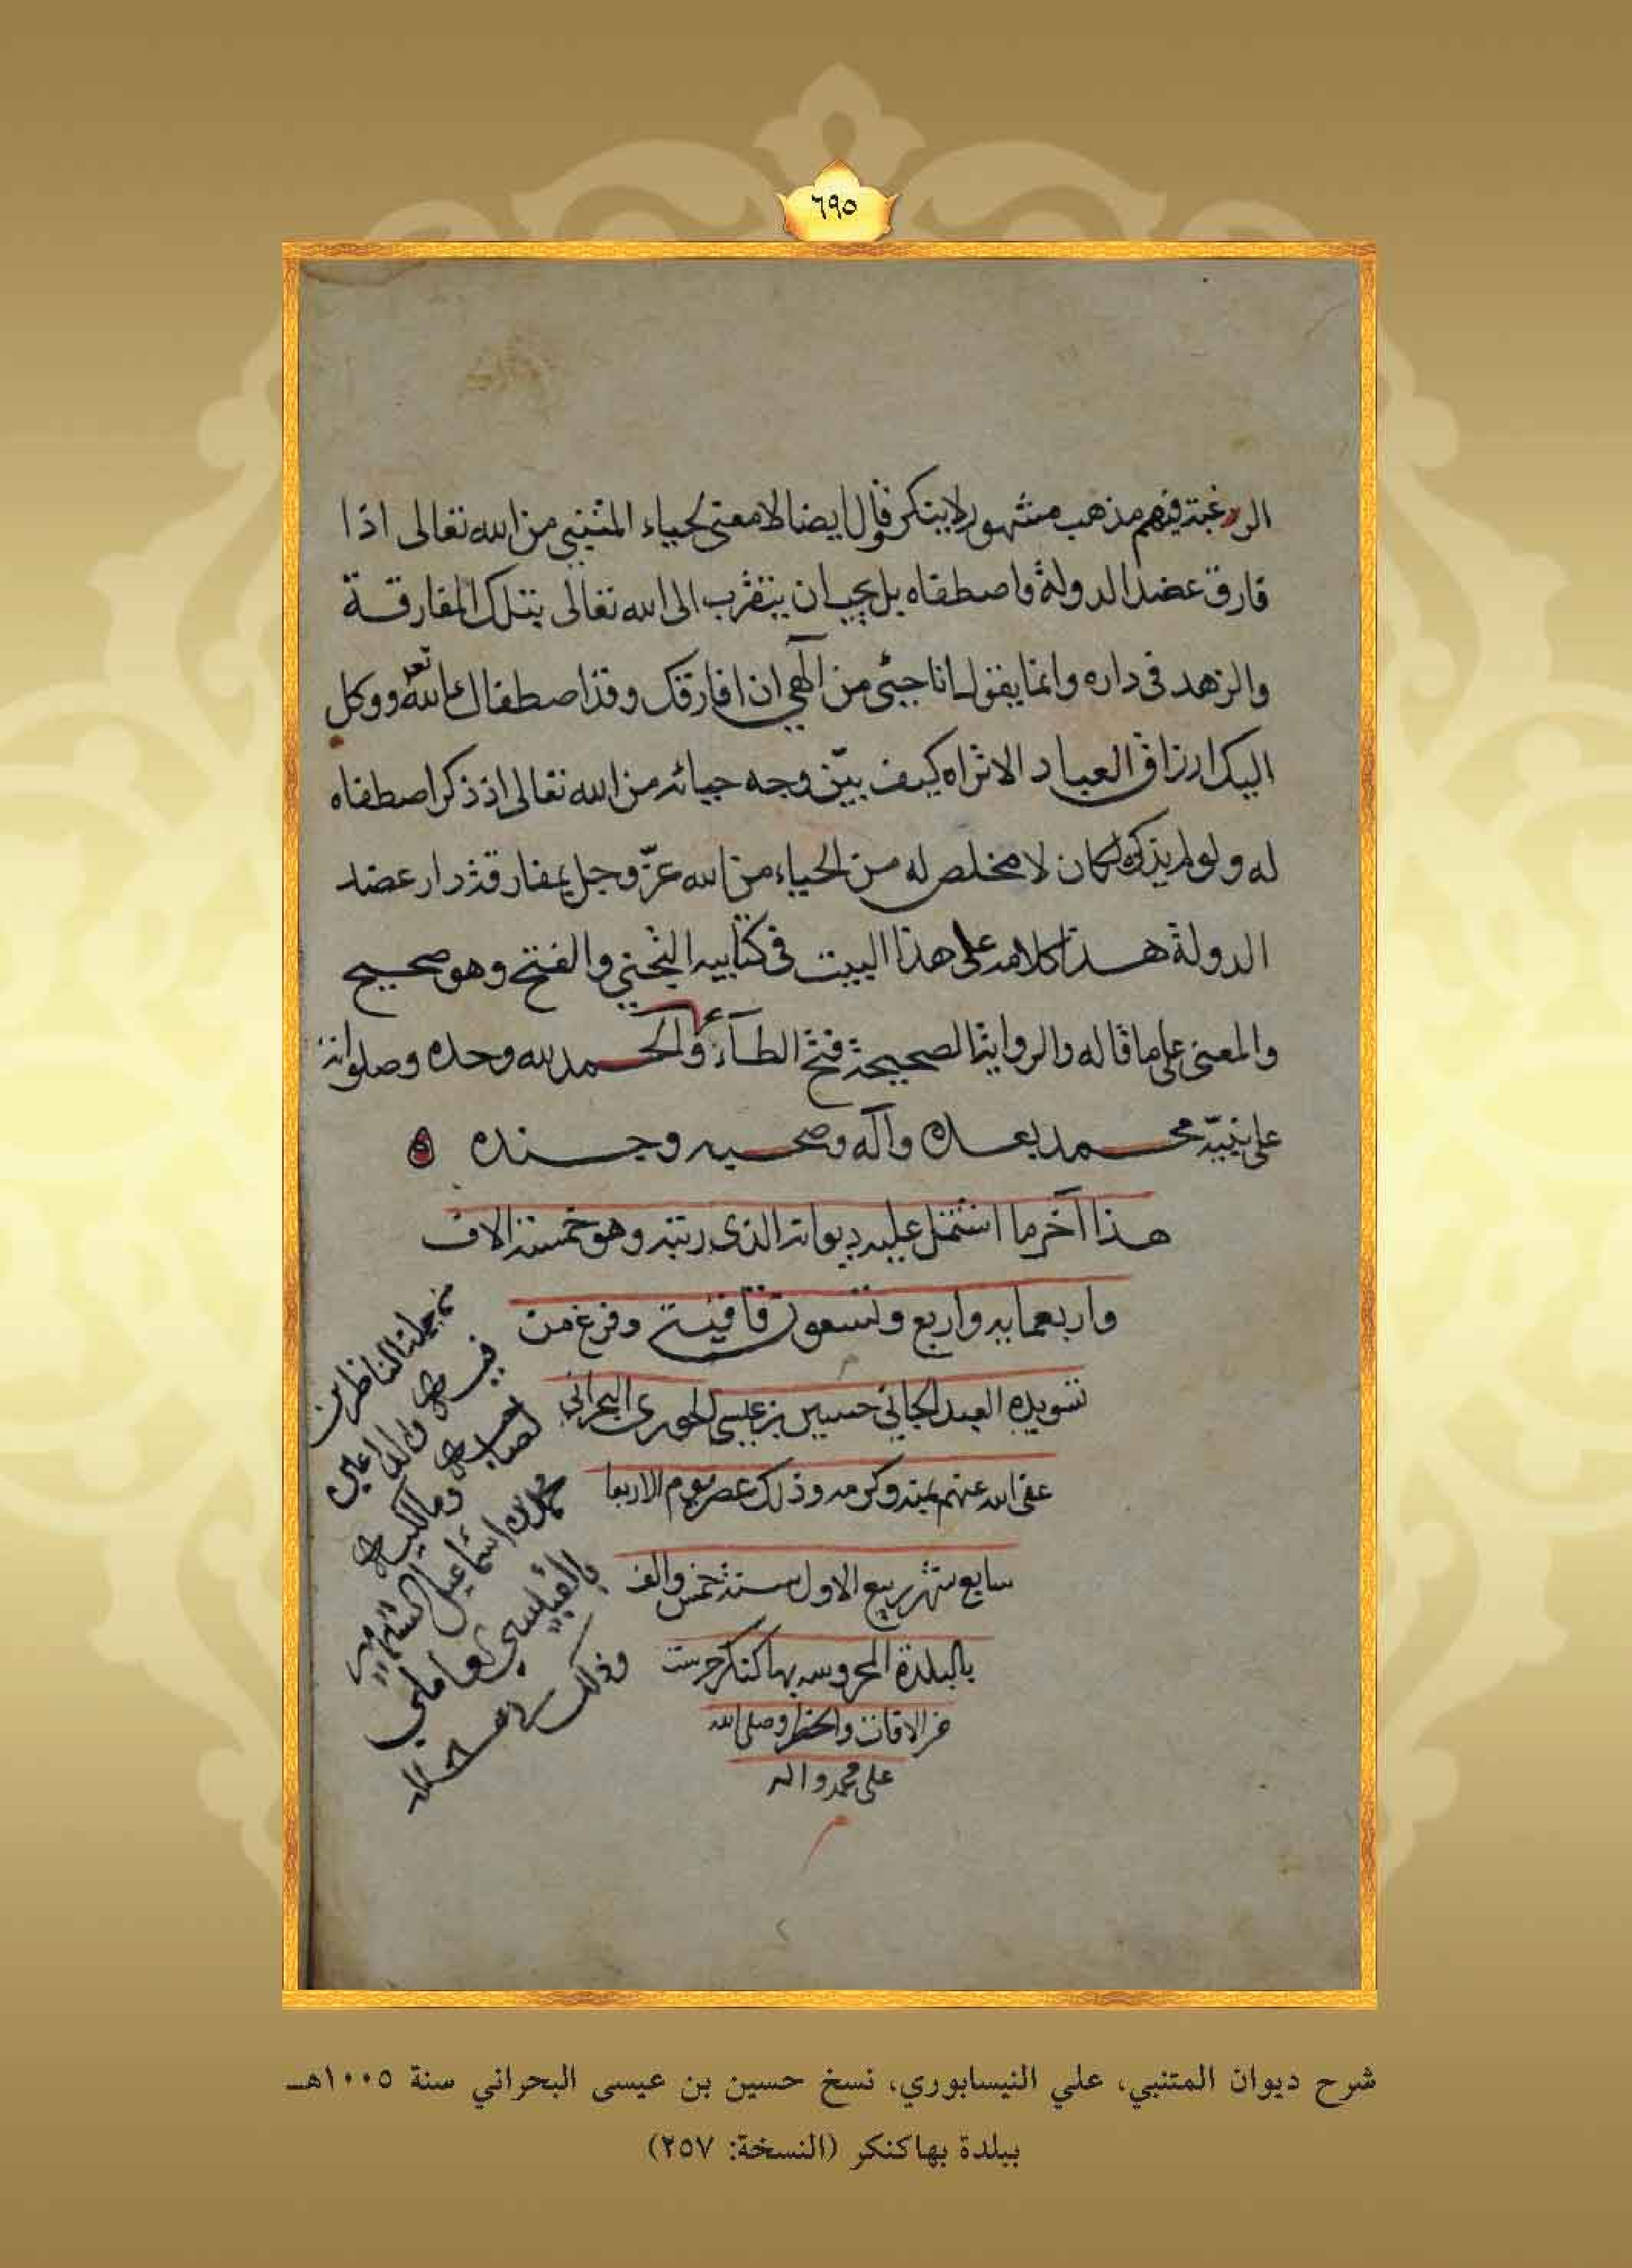 ٦٩٥
الرغبة فيهم مذهب مشهور لا ينكر قال ايضا لا معنى لحياء المتنبي من الله تعالى اذا
فارق عضد الدولة واصطفاه بل يجب ان يتقرب الى الله تعالى بتلك المفارقة
والزهد في داره وانما يقول انا حيي من الهي ان افارقك وقد اصطفاك الله تعـ ووكل
اليك ارزاق العباد الا تراه كيف بيّن وجه حيائه من الله تعالى اذ ذكر اصطفاه
له ولو لم يذكره لكان لا مخلص له من الحياء من الله عزّ وجل بمفارقة دار عضد
الدولة هذا كلامه على هذا البيت في كتابيه التجني والفتح وهو صحيح
والمعنى على ما قاله والرواية الصحيحة فتح الطآء والحمد لله وحده وصلواته
على نبيّه محمد بعده وآله وصحبه وجنده ه
هذا آخر ما اشتمل عليه ديوانه الذي رتبه وهو خمسة الاف
واربعمايه واربع وتسعون قافية وفرغ من
تسويده العبد الجاني حسين بن عيسى البحراني
عفى الله عنهم بمنه وكرمه وذلك عصر يوم الاربعا
سابع شهر ربيع الاول سنة خمس والف
بالبلدة المحروسه بهاكنكر حرست
من الافات والخطر وصلى الله
على محمد واله
من جملة الناظرين
فيه والداعين
لصاحبه ومالكيه
محمد بن اسماعيل الشهير
وذلك
شرح ديوان المتنبي، علي النيسابوري، نسخ حسين بن عيسى البحراني سنة ١٠٠٥هـ
ببلدة بهاكنكر (النسخة: ٢٥٧)